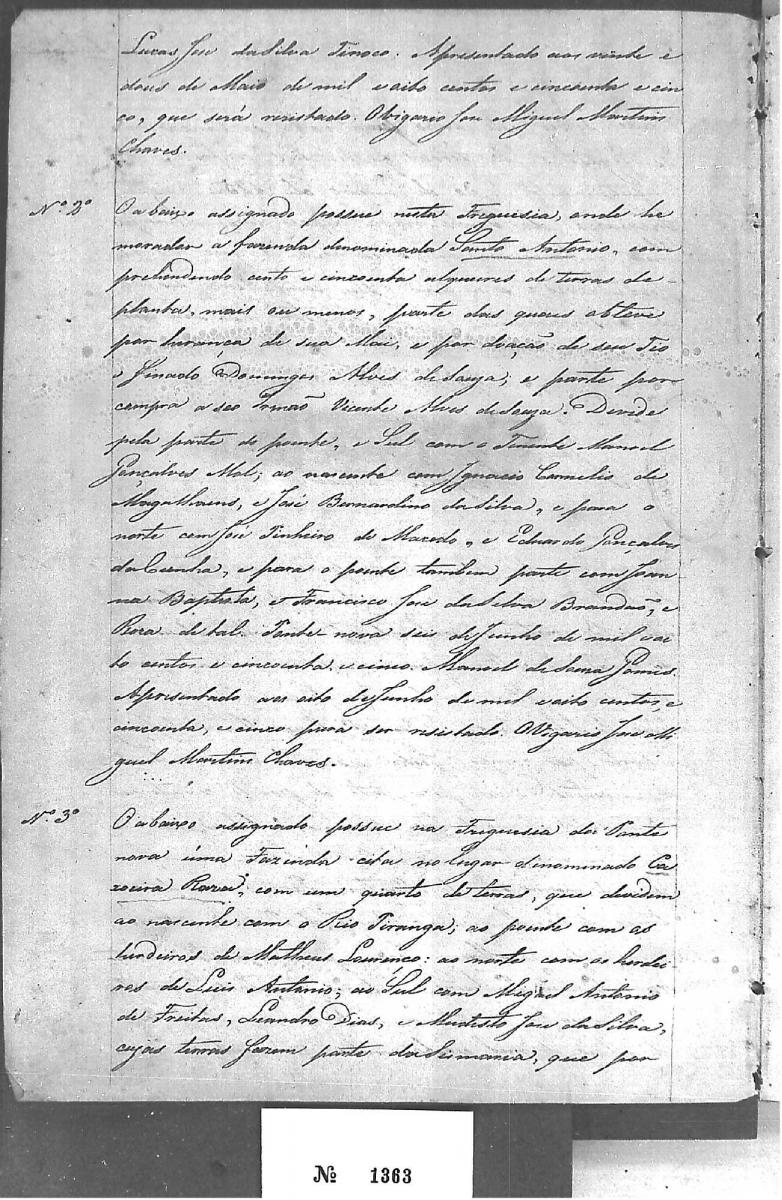 Lucas Jose da Silva Tinoco. Apresentado aos vinte e
dous de Maio de mil e oito centos e cincoenta e cin
co, que será resistado. O Vigario Jose Miguel Martins
Chaves.
Nº 2º O abaixo assignado possue nesta Freguesia, onde he
morador a fazenda denominada Santo Antonio, com
prehendendo cento e cincoenta alqueires de terras de
planta, mais ou menos, parte das quaes obteve
por herança de sua Mai, e por doação de seu Tio
o Finado Domingos Alves de Souza, e parte por
compra a seo Irmaõ Vicente Alves de Souza. Devide
pela parte do poente, e Sul com o Tenente Manoel
Gonçalves Mol; ao nascente com Ignacio Cornelio de
Magalhaens, e José Bernardino da Silva, e para o
norte com Jose Pinheiro de Macedo, e Eduardo Gonçalves
da Cunha, e para o poente tambem parte com Joan
na Baptista, e Francisco Jose da Silva Brandaõ, e
Rosa de tal. Ponte nova seis de Junho de mil e oi
to centos e cincoenta e cinco. Manoel de Souza Gomes.
Apresentado aos oito de Junho de mil e oito centos, e
cincoenta, e cinco para ser resistado. O Vigario Jose Mi
guel Martins Chaves.
Nº 3º O abaixo assignado possue na Freguesia da Ponte
nova uma Fazenda cita no lugar denominado Ca
xoeira Raza, com um quarto de terras, que devidem
ao nascente com o Rio Piranga; ao poente com os
herdeiros de Matheus Lourenço: ao norte com os herdei
ros de Luis Antonio; ao Sul com Miguel Antonio
de Freitas, Leandro Dias, e Modesto Jose da Silva,
cujas terras fazem parte da Sismaria, que por
Nº 1363